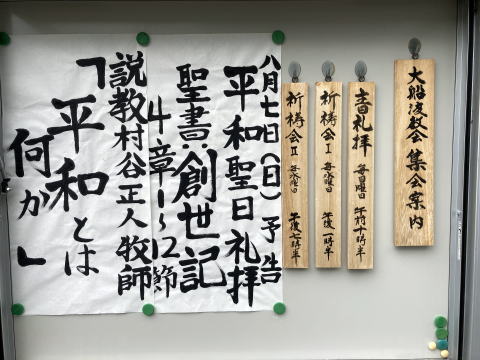 大船渡教会 集会案内
主日礼拝 毎日曜日 午前十時半
祈祷会Ⅰ 毎水曜日 午後一時半
祈祷会Ⅱ 毎水曜日 午後七時半
八月七日(日)予告
平和聖日礼拝
聖書:創世記
4章1〜12節
説教 村谷正人 牧師
「平和とは
何か」